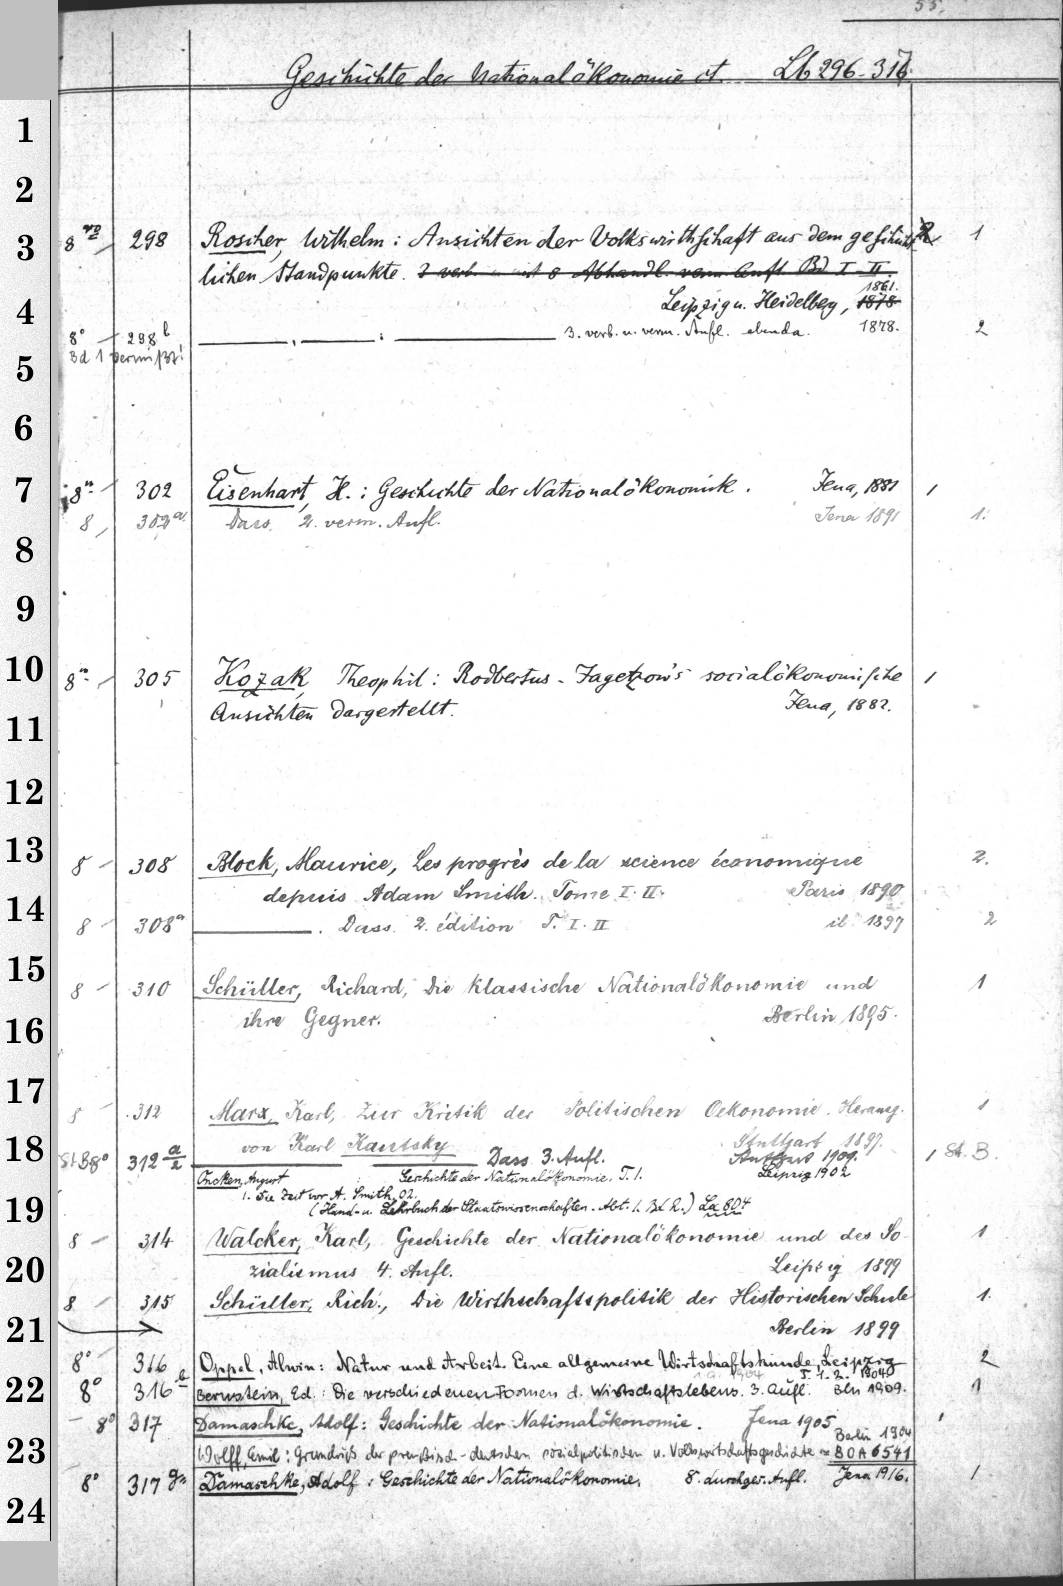 55.
Geschichte der Nationalökonomie et. Lb 296-317.
1
2
3 8vo 298 Roscher, Wilhelm: Ansichten der Volkswirthschaft aus dem geschicht- 1
lichen Standpunkte. 3 verb. Aufl. Bd I-II.
1861.
4 Leipzig u. Heidelberg, 1878
8° 298b —, —: — 3. verb. u. verm. Aufl. ebenda. 1878. 2
Bd 1 vermißt!
5
6
7 8° 302 Eisenhart, H.: Geschichte der Nationalökonomik. Jena, 1881 1
8, 302a Dass. 2. verm. Aufl. Jena 1891 1.
8
9
10 8° 305 Kozak, Theophil: Rodbertus-Jagetzow's socialökonomische 1
Ansichten dargestellt. Jena, 1882.
11
12
13 8 308 Block, Maurice, Les progrès de la science économique 2.
depuis Adam Smith. Tome I. II. Paris 1890
14 8 308a —. Dass. 2. édition T. I. II ib. 1897 2
15 8 310 Schüller, Richard, Die klassische Nationalökonomie und 1
16 ihre Gegner. Berlin 1895.
17 8 312 Marx, Karl, Zur Kritik der Politischen Oekonomie. Herausg. 1
von Karl Kautsky Stuttgart 1897.
18 St.B 8° 312 a/2 — — Dass. 3. Aufl. Stuttgart 1909. 1 St. B.
Oncken, August : Geschichte der Nationalökonomie. T. 1. Leipzig 1902
1. Die Zeit vor A. Smith. 02.
19 (Hand- u. Lehrbuch der Staatswissenschaften. Abt. 1. Bd 2.) La 804
8 314 Walcker, Karl, Geschichte der Nationalökonomie und des So- 1
20 zialismus 4. Aufl. Leipzig 1899
8 315 Schüller, Rich., Die Wirthschaftspolitik der Historischen Schule 1.
21 Berlin 1899
8° 316 Oppel, Alwin: Natur und Arbeit. Eine allgemeine Wirtschaftskunde, Leipzig 2
T. 1. 2. 1904
22 8° 316b Bernstein, Ed.: Die verschiedenen Formen d. Wirtschaftslebens. 3. Aufl. Bln 1909. 1
8° 317 Damaschke, Adolf: Geschichte der Nationalökonomie. Jena 1905 1
Berlin 1904
23 Wolff, Emil: Grundriß der preußisch-deutschen sozialpolitischen u. Volkswirtschaftsgeschichte = BOA 6541
8° 317 Damaschke, Adolf: Geschichte der Nationalökonomie, 8. durchges. Aufl. Jena 1916. 1
24